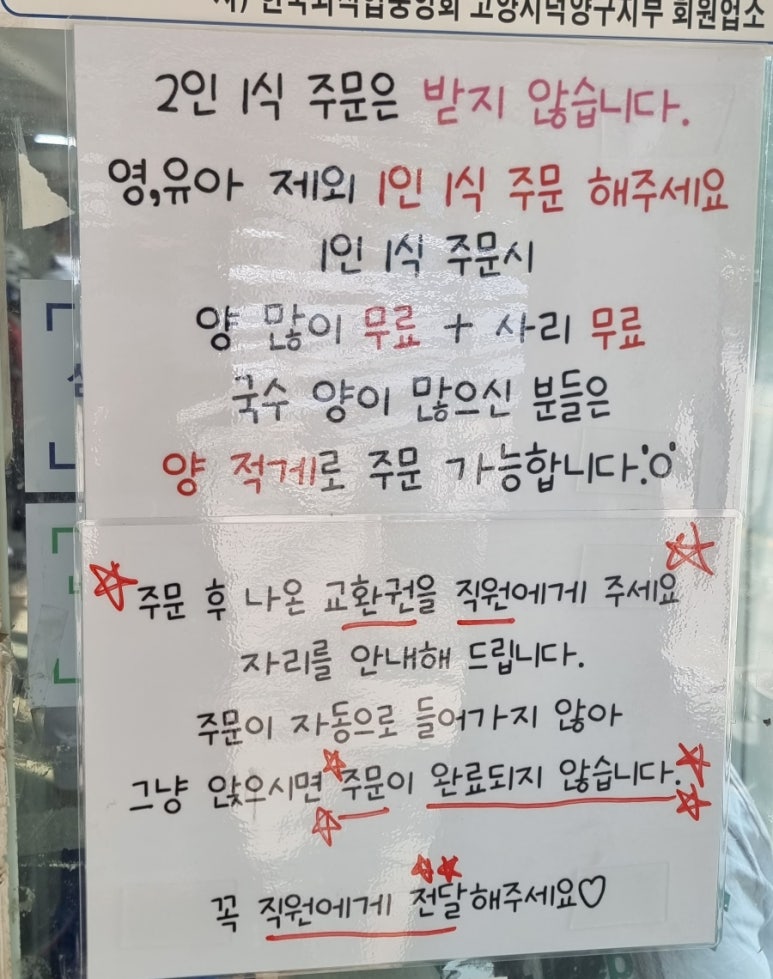 사) 한국외식업중앙회 고양시덕양구지부 회원업소
2인 1식 주문은 받지 않습니다.
영,유아 제외 1인 1식 주문 해주세요
1인 1식 주문시
양 많이 무료 + 사리 무료
국수 양이 많으신 분들은
양 적게로 주문 가능합니다.'o'
주문 후 나온 교환권을 직원에게 주세요
자리를 안내해 드립니다.
주문이 자동으로 들어가지 않아
그냥 앉으시면 주문이 완료되지 않습니다.
꼭 직원에게 전달해주세요♡